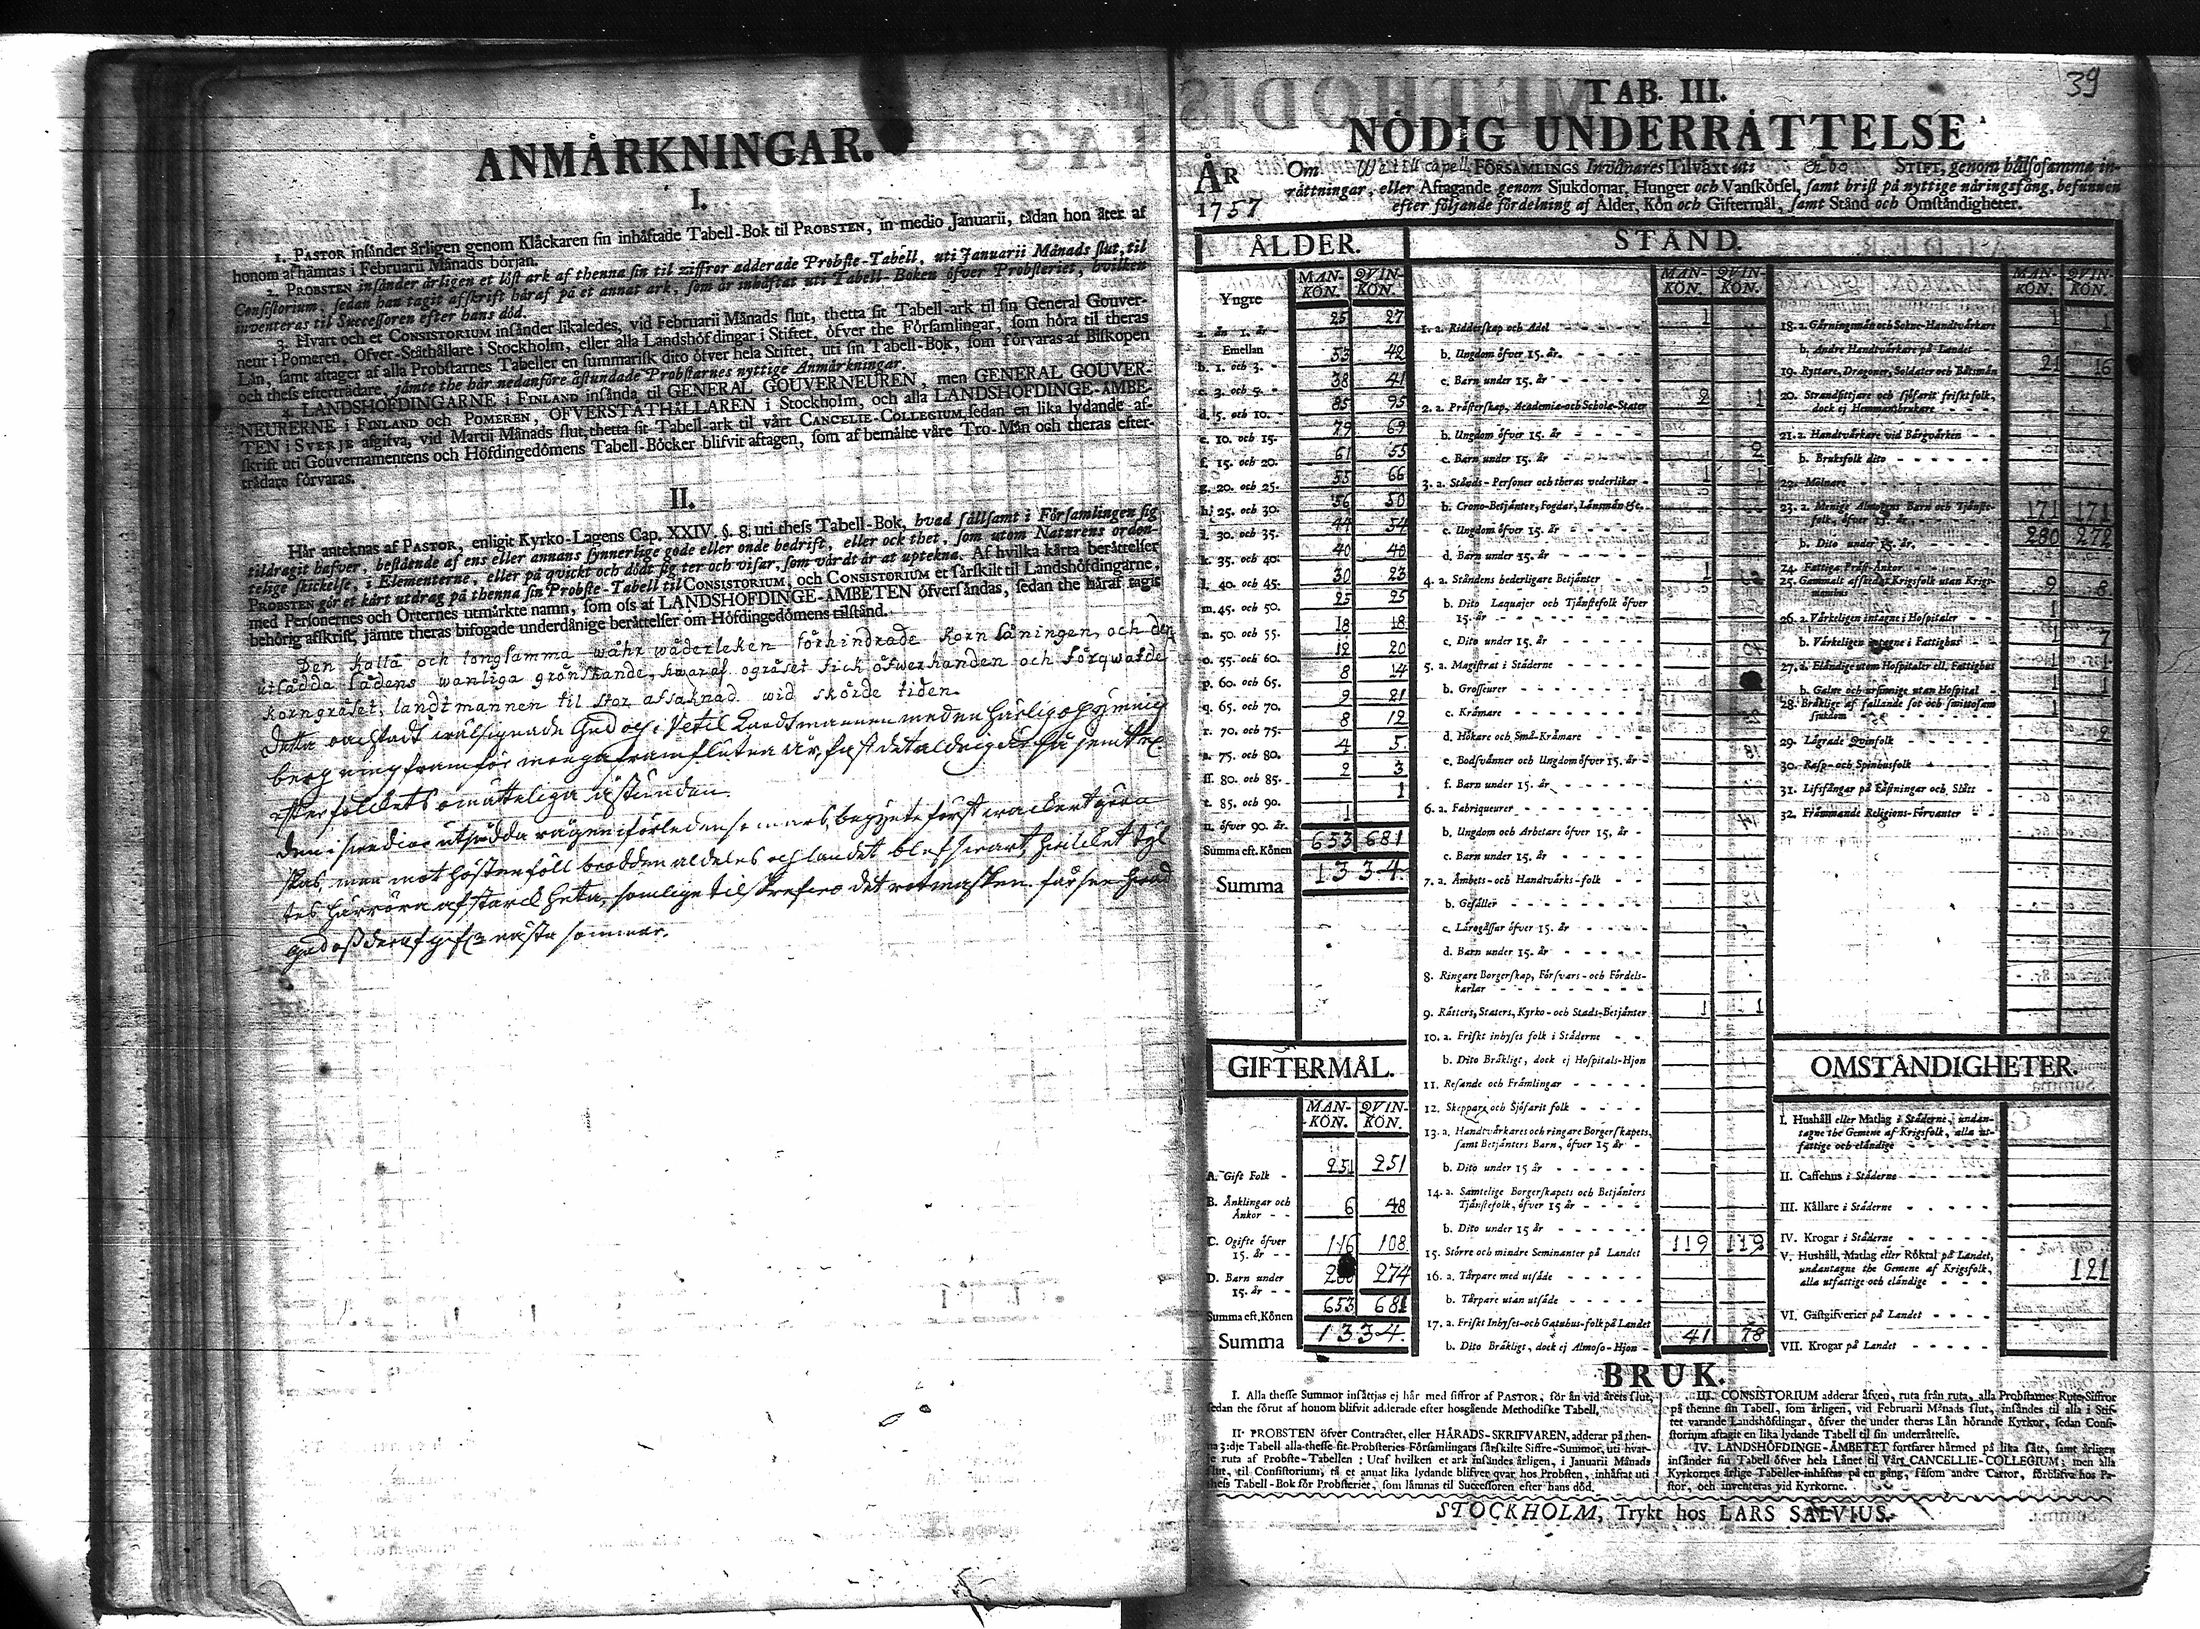 ANMÄRKNINGAR.
I.
1. PASTOR insänder årligen genom Klåckaren sin inhäftade Tabell-Bok til PROBSTEN, in medio Januarii, tådan hon åter af
honom afhämtas i Februarii Månads början.
2. PROBSTEN insänder årligen et löst ark af thenna sin til ziffror adderade Probste-Tabell, uti Januarii Månads slut, til
Consistorium, sedan han tagit afskrift häraf på et annat ark, som är inhäftat uti Tabell-Boken öfver Probsteriet, hvilken
inventeras til Successoren efter hans död.
3. Hvart och et CONSISTORIUM insänder likaledes, vid Februarii Månads slut, thetta sit Tabell-ark til sin General Gouver-
neur i Pomeren, Öfver-Ståthållare i Stockholm, eller alla Landshöfdingar i Stiftet, öfver the Församlingar, som höra til theras
Län, samt aftager af alla Probstarnes Tabeller en summarisk dito öfver hela Stiftet, uti sin Tabell-Bok, som förvaras af Biskopen
och thess efterträdare, jämte the här nedanföre åstundade Probstarnes nyttige Anmärkningar.
4. LANDSHÖFDINGARNE i FINLAND insända til GENERAL GOUVERNEUREN, men GENERAL GOUVER-
NEURERNE i FINLAND och POMEREN, ÖFVERSTÅTHÅLLAREN i Stockholm, och alla LANDSHÖFDINGE-ÄMBE-
TEN i SVERJE afgifva, vid Martii Månads slut, thetta sit Tabell-ark til vårt CANCELIE-COLLEGIUM, sedan en lika lydande af-
skrift uti Gouvernamentens och Höfdingedömens Tabell-Böcker blifvit aftagen, som af bemälte våre Tro-Män och theras efter-
trädare förvaras.
II.
Här anteknas af PASTOR, enligit Kyrko-Lagens Cap. XXIV. §. 8. uti thess Tabell-Bok, hvad sällsamt i Församlingen sig
tildragit hafver, bestående af ens eller annans synnerlige gode eller onde bedrift, eller ock thet, som utom Naturens orden-
telige skickelse, i Elementerne, eller på qvickt och dödt sig ter och visar, som värdt är at uptekna. Af hvilka korta berättelser
PROBSTEN gör et kort utdrag på thenna sin Probste-Tabell til CONSISTORIUM, och CONSISTORIUM et särskilt til Landshöfdingarne,
med Personernes och Orternes utmärkte namn, som oss af LANDSHÖFDINGE-ÄMBETEN öfversändas, sedan the häraf tagit
behörig afskrift, jämte theras bifogade underdånige berättelser om Höfdingedömens tilstånd.
Den kalla och longsamma wåhr wäderleken förhindrade korn såningen, och den
utsådda sådens wanliga grönskande, hwaraf ogräset fick öfwerhanden och förqwafde
korngräset, landtmannen til stor afsaknad wid skörde tiden.
TAB. III.
39
NÖDIG UNDERRÄTTELSE
ÅR 1757
Om Wetill capell FÖRSAMLINGS Inbönares Tilväxt uti Åbo STIFT, genom hälsosamma in-
rättningar, eller Aftagande genom Sjukdomar, Hunger och Vanskötsel, samt brist på nyttige näringsfång, befunnen
efter följande fördelning af Ålder, Kön och Giftermål, samt Stånd och Omständigheter.
ÅLDER.
MAN-KÖN. QVIN-KÖN.
Yngre
a. än 1. år 25 27
Emellan
b. 1. och 3. 53 42
c. 3. och 5. 38 41
d. 5. och 10. 85 95
e. 10. och 15. 79 69
f. 15. och 20. 61 55
g. 20. och 25. 55 66
h. 25. och 30. 36 50
i. 30. och 35. 44 54
k. 35. och 40. 40 40
l. 40. och 45. 30 23
m. 45. och 50. 25 25
n. 50. och 55. 18 18
o. 55. och 60. 12 20
p. 60. och 65. 8 14
q. 65. och 70. 9 21
r. 70. och 75. 8 12
s. 75. och 80. 4 5
ss. 80. och 85. 2 3
t. 85. och 90. 1
u. öfver 90. år. 1
Summa eft. Könen 653 681
Summa 1334.
GIFTERMÅL.
MAN-KÖN. QVIN-KÖN.
A. Gift Folk 251 251
B. Änklingar och Änkor 6 48
C. Ogifte öfver 15. år 116 108
D. Barn under 15. år 274
Summa eft. Könen 653 681
Summa 1334.
STÅND.
MAN-KÖN. QVIN-KÖN.
1. a. Ridderskap och Adel 1
b. Ungdom öfver 15. år.
c. Barn under 15. år
2. a. Prästerskap, Academiæ- och Scholæ-Stater 2 1
b. Ungdom öfver 15. år
c. Barn under 15. år 2
3. a. Stånds-Personer och theras vederlikar 1 1
b. Crono-Betjänter, Fogdar, Länsmän &c.
c. Ungdom öfver 15. år
d. Barn under 15. år
4. a. Ståndens hederligare Betjänter 1
b. Dito Laquajer och Tjänstefolk öfver
15. år
c. Dito under 15. år
5. a. Magistrat i Städerne
b. Grosseurer
c. Krämare
d. Hökare och Små-Krämare
e. Bodsvänner och Ungdom öfver 15. år
f. Barn under 15. år
6. a. Fabriqueurer
b. Ungdom och Arbetare öfver 15. år
c. Barn under 15. år
7. a. Ämbets- och Handtvärks-folk
b. Gesäller
c. Lärogåssar öfver 15. år
d. Barn under 15. år
8. Ringare Borgerskap, Försvars- och Fördels-
karlar
9. Rätters, Staters, Kyrko- och Stads-Betjänter 1 1
10. a. Friskt inhyses folk i Städerne
b. Dito Bräkligt, dock ej Hospitals-Hjon
11. Resande och Främlingar
12. Skeppare och Sjöfarit folk
13. a. Handtvärkares och ringare Borgerskapets,
samt Betjänters Barn, öfver 15 år
b. Dito under 15 år
14. a. Samtelige Borgerskapets och Betjänters
Tjänstefolk, öfver 15 år
b. Dito under 15 år
15. Större och mindre Seminanter på Landet 119 119
16. a. Torpare med utsäde
b. Torpare utan utsäde
17. a. Friskt Inhyses- och Gatuhus-folk på Landet
b. Dito Bräkligt, dock ej Almoso-Hjon 41 78
MAN-KÖN. QVIN-KÖN.
18. a. Gärningsmän och Sokne-Handtvärkare 1 1
b. Andre Handtvärkare på Landet
19. Ryttare, Dragoner, Soldater och Båtsmän 21 16
20. Strandsittjare och sjöfarit friskt folk,
dock ej Hemmansbrukare
21. a. Handtvärkare vid Bärgvärken
b. Bruksfolk dito
22. Mölnare
23. a. Menige Almogens Barn och Tjänste-
folk, öfver 15. år 171 171
b. Dito under 15. år. 280 272
24. Fattiga Präst-Änkor
25. Gammalt afskedat Krigsfolk utan Krigs-
manshus 9 8
26. a. Värkeligen intagne i Hospitaler 1
b. Värkeligen intagne i Fattighus 1 7
27. a. Eländige utom Hospitaler ell. Fattighus 1 1
b. Galne och ursinnige utan Hospital 1 1
28. Bräklige af fallande sot och smittosam
sjukdom 1
29. Lägrade Qvinfolk 2
30. Rasp- och Spinhusfolk
31. Lifsfångar på Fästningar och Slått
32. Främmande Religions-Förvanter
OMSTÄNDIGHETER.
I. Hushåll eller Matlag i Städerne, undan-
tagne the Gemene af Krigsfolk, alla ut-
fattige och eländige
II. Caffehus i Städerne
III. Källare i Städerne
IV. Krogar i Städerne
V. Hushåll, Matlag eller Röktal på Landet,
undantagne the Gemene af Krigsfolk,
alla utfattige och eländige 121
VI. Gästgifverier på Landet
VII. Krogar på Landet
BRUK.
I. Alla thesse Summor insättjas ej här med siffror af PASTOR, för än vid årets slut,
sedan the förut af honom blifvit adderade efter hosgående Methodiske Tabell.
II. PROBSTEN öfver Contractet, eller HÄRADS-SKRIFVAREN, adderar på then-
na 3:dje Tabell alla thesse sit Probsteries Församlingars särskilte Siffre-Summor, uti hvar-
je ruta af Probste-Tabellen: Utaf hvilken et ark insändes årligen, i Januarii Månads
slut, til Consistorium, tå et annat lika lydande blifver qvar hos Probsten, inhäftat uti
thess Tabell-Bok för Probsteriet, som lämnas til Successoren efter hans död.
III. CONSISTORIUM adderar äfven, ruta från ruta, alla Probstarnes Rute-Siffror
på thenne sin Tabell, som årligen, vid Februarii Månads slut, insändes til alla i Stif-
tet varande Landshöfdingar, öfver the under theras Län hörande Kyrkor, sedan Consi-
storium aftagit en lika lydande Tabell til sin underrättelse.
IV. LANDSHÖFDINGE-ÄMBETET fortfarer härmed på lika sätt, samt årligen
insänder sin Tabell öfver hela Länet til Vårt CANCELLIE-COLLEGIUM; men alla
Kyrkornes årlige Tabeller inhäftas på en gång, såsom andre Cartor, förblifva hos Pa-
stor, och inventeras vid Kyrkorne.
STOCKHOLM, Trykt hos LARS SALVIUS.